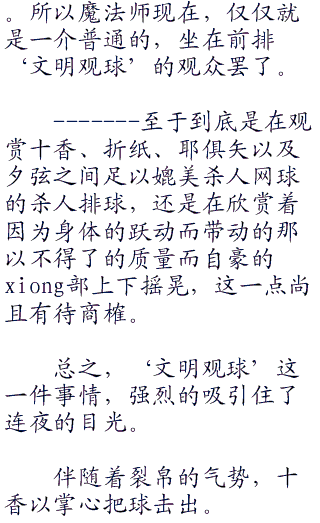 。所以魔法师现在，仅仅就
是一介普通的，坐在前排
‘文明观球’的观众罢了。
-------至于到底是在观
赏十香、折纸、耶俱矢以及
夕弦之间足以媲美杀人网球
的杀人排球，还是在欣赏着
因为身体的跃动而带动的那
以不得了的质量而自豪的
xiong部上下摇晃，这一点尚
且有待商榷。
总之，‘文明观球’这
一件事情，强烈的吸引住了
连夜的目光。
伴随着裂帛的气势，十
香以掌心把球击出。